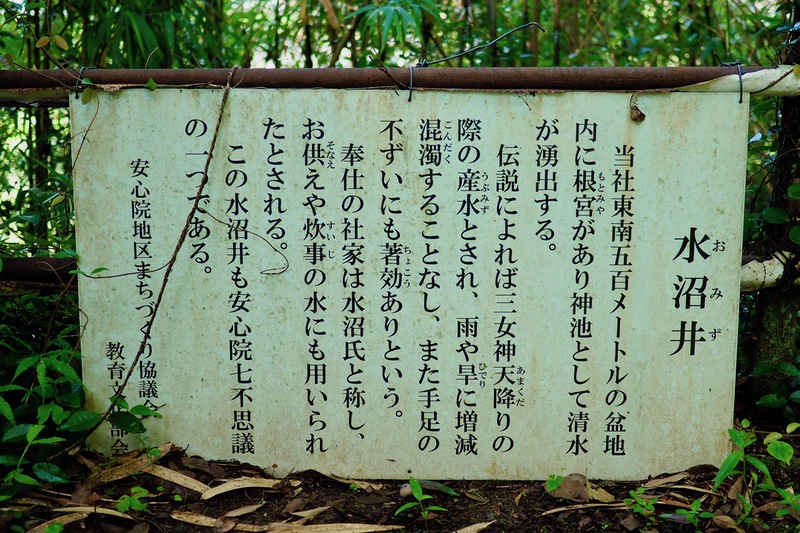 おみず
水沼井
当社東南五百メートルの盆地
もとみや
内に根宮があり神池として清水
が湧出する。
あまくだ
伝説によれば三女神天降りの
うぶみず ひでり
際の産水とされ、雨や旱に増減
こんだく
混濁することなし、また手足の
ちょこう
不ずいにも著効ありという。
奉仕の社家は水沼氏と称し、
そなえ すいじ
お供えや炊事の水にも用いられ
たとされる。
この水沼井も安心院七不思議
の一つである。
安心院地区まちづくり協議会
教育文化部会